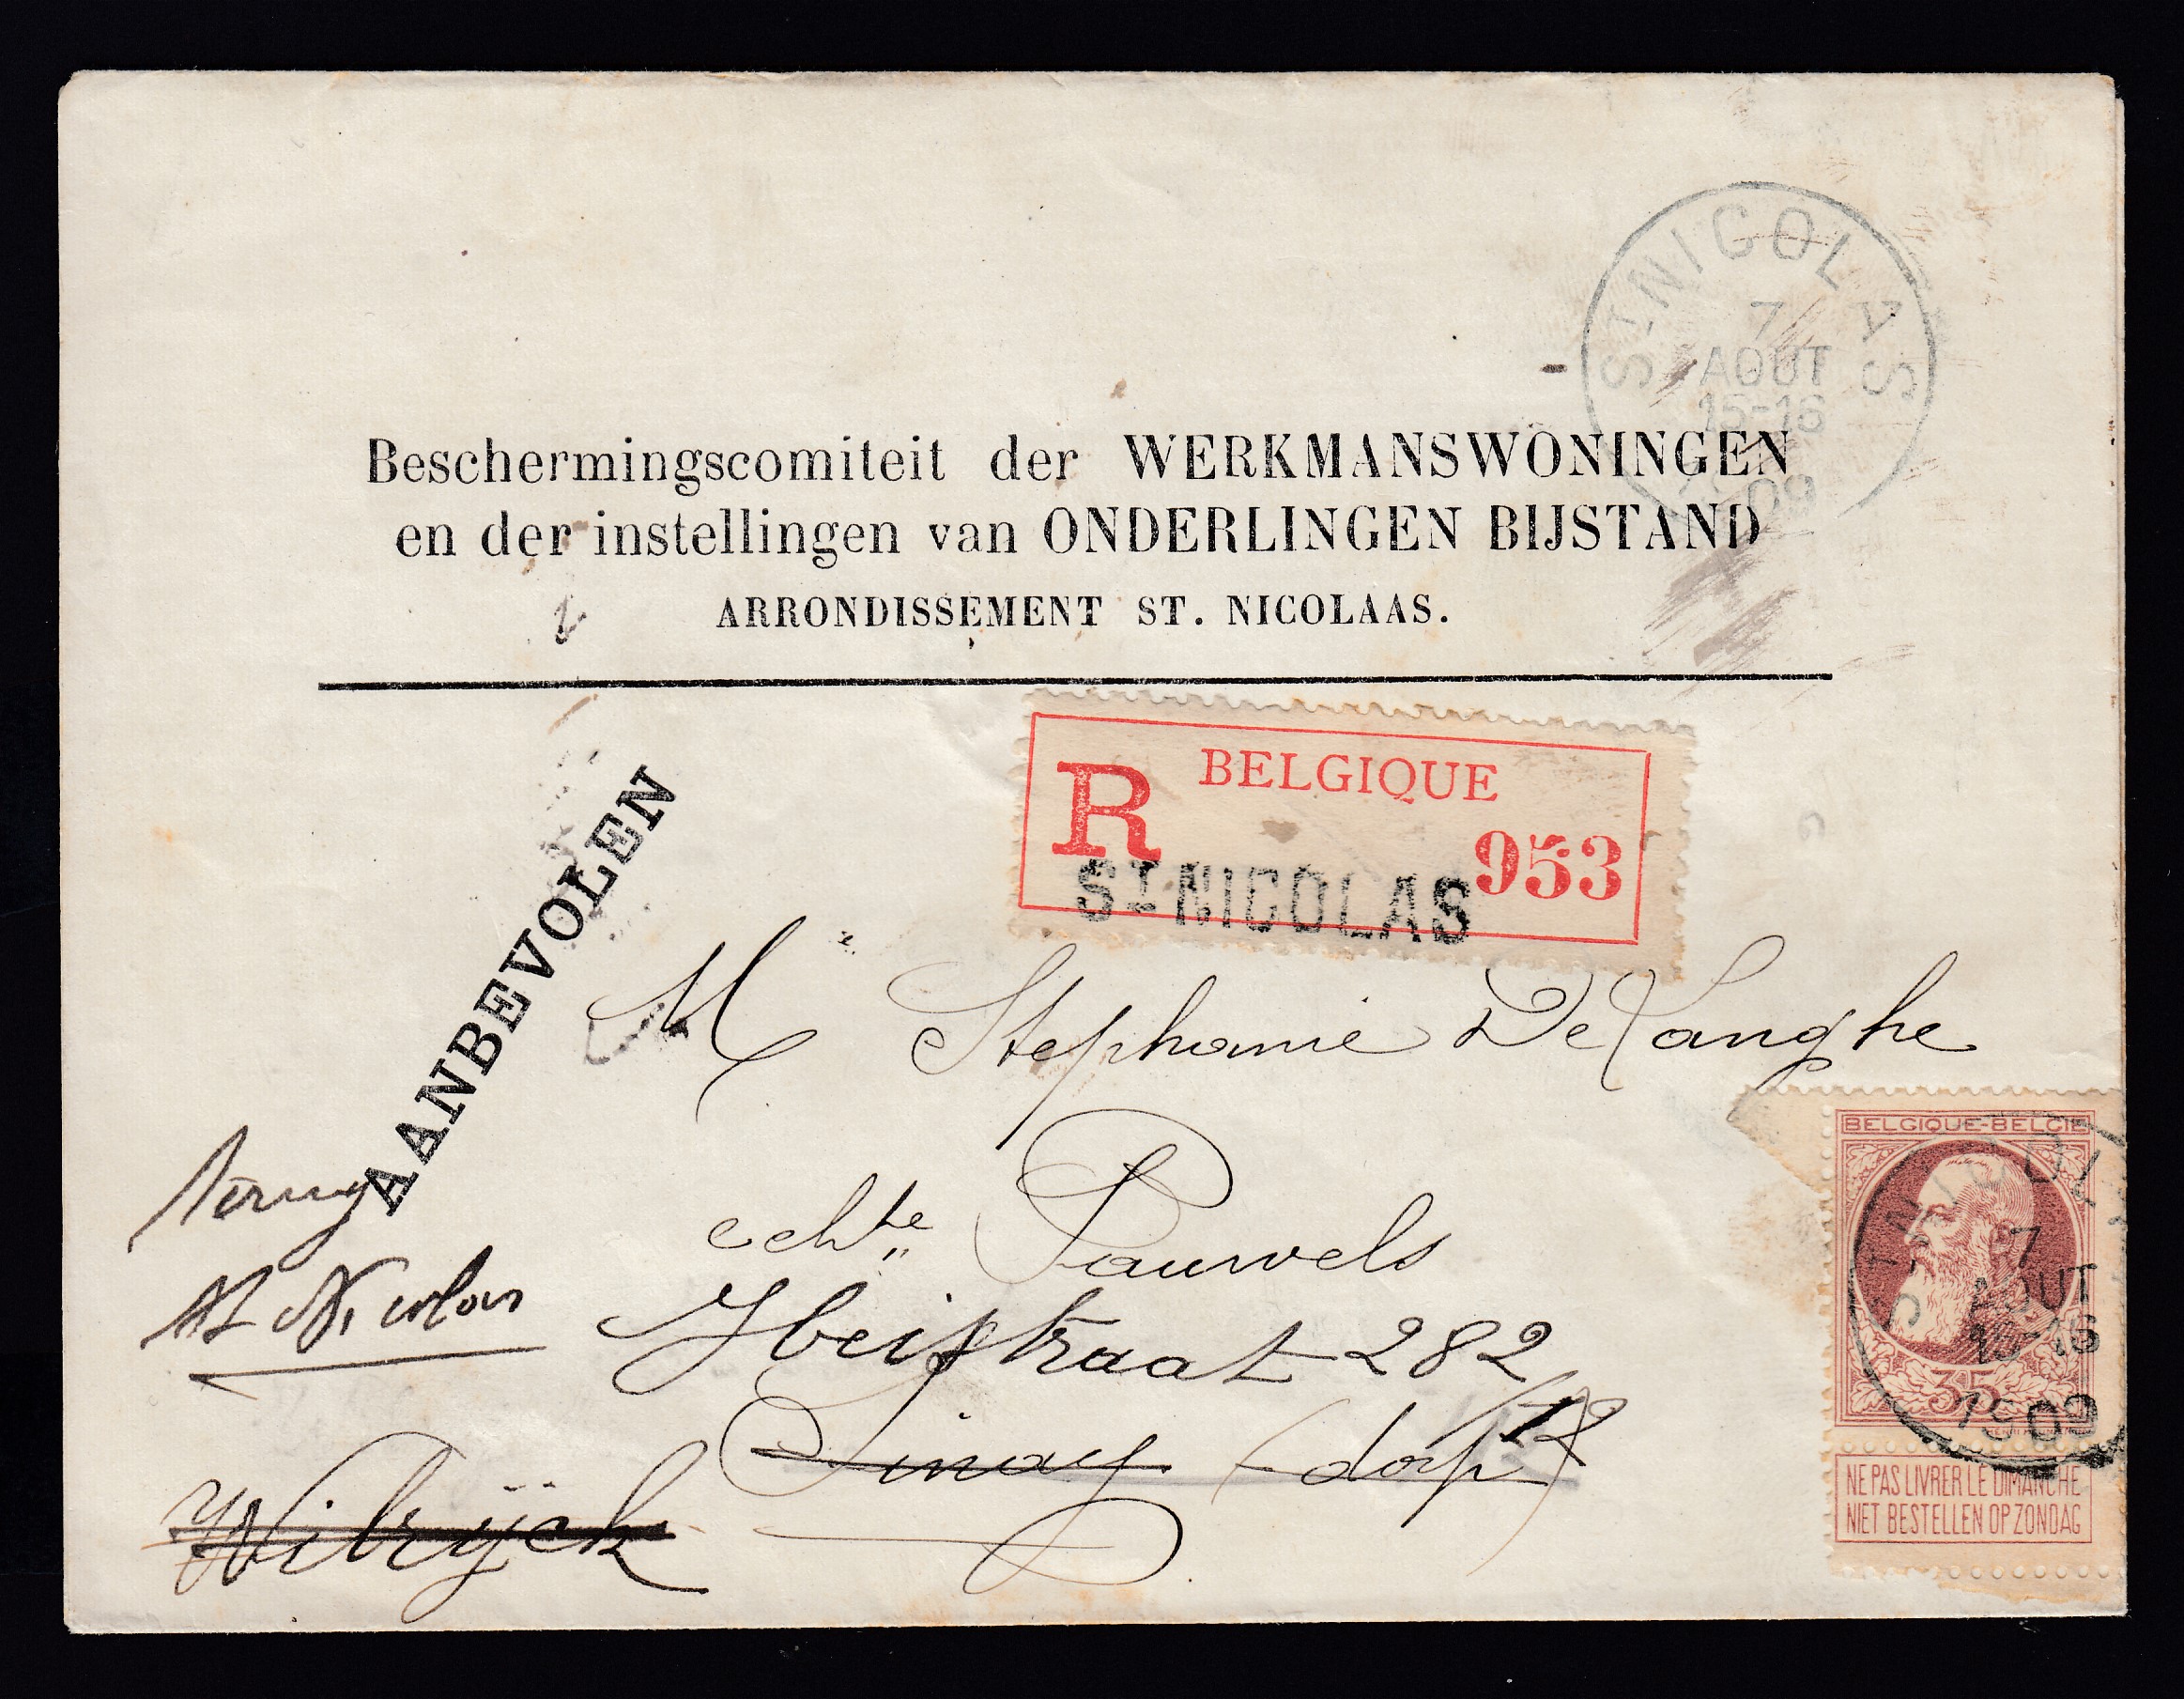 ST NICOLAS
7
AOUT
15-16
1909
Beschermingscomiteit der WERKMANSWONINGEN
en der instellingen van ONDERLINGEN BIJSTAND
ARRONDISSEMENT ST. NICOLAAS.
R BELGIQUE
953
ST NICOLAS
AANBEVOLEN
M Stephanie De Langhe
echte Pauwels
282
Sinay (dorp)
Terug
St Nicolas
Wilrijck
BELGIQUE-BELGIE
ST NICOL
7
AOUT
15-16
1909
35
NE PAS LIVRER LE DIMANCHE
NIET BESTELLEN OP ZONDAG